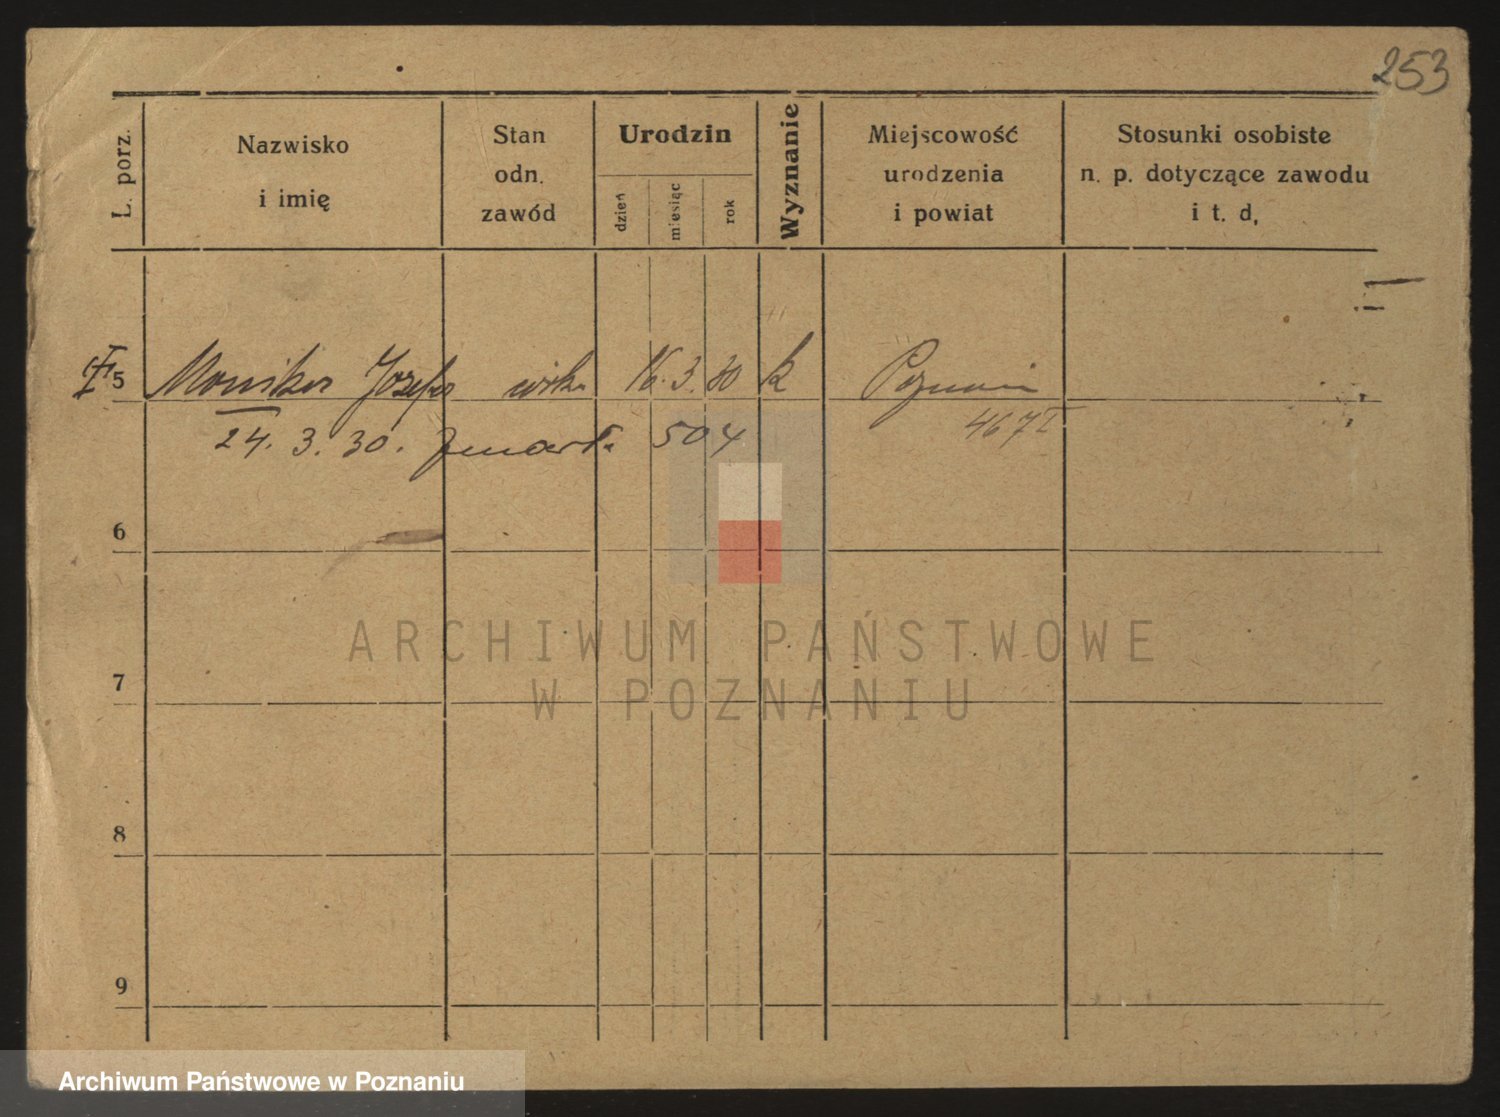 253
L. porz.
Nazwisko
i imię
Stan
odn.
zawód
Urodzin
dzień
miesiąc
rok
Wyznanie
Miejscowość
urodzenia
i powiat
Stosunki osobiste
n. p. dotyczące zawodu
i t. d.
5 Monika Józefa córka 16. 3. 30 k Poznań
24. 3. 30. zmarła 504 467 I
6
7
8
9
ARCHIWUM PAŃSTWOWE
W POZNANIU
Archiwum Państwowe w Poznaniu